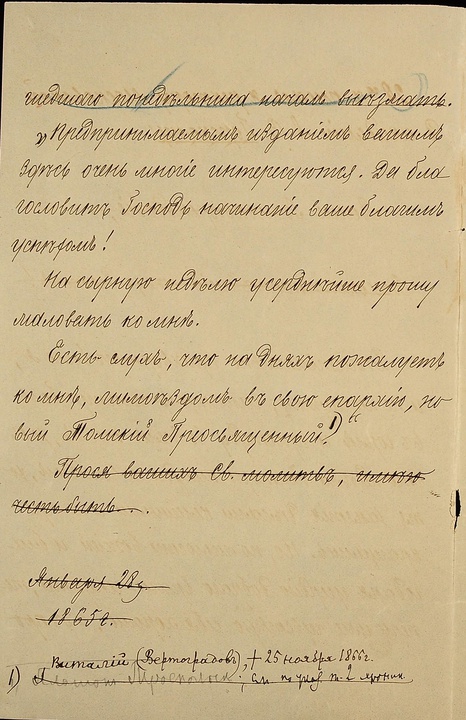 шедшаго понедѣльника началъ выѣзжать.
„Предпринимаемымъ изданіемъ вашимъ
здѣсь очень многіе интересуются. Да бла
гословитъ Господь начинаніе ваше благимъ
успѣхомъ!
На сырную недѣлю усерднѣйше прошу
жаловать ко мнѣ.
Есть слухъ, что на дняхъ пожалуетъ
ко мнѣ, мимоѣздомъ въ свою епархію, но
вый Томскій Преосвященный.“ 1)
Прося вашихъ Св. молитвъ, имѣю
честь быть...
Января 28 д.
1865 г.
Виталій (Вертоградовъ), † 25 ноября 1866 г.
1)